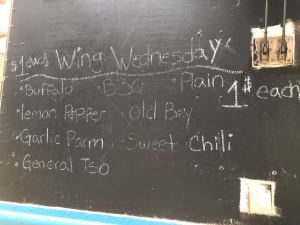 $1 each Wing Wednesday
• Buffalo • BBQ • Plain 1$ each
• lemon Pepper • Old Bay
• Garlic Parm • Sweet Chili
• General Tso